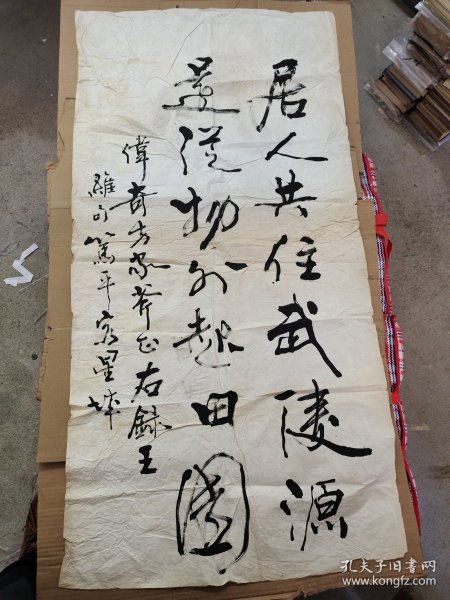 居人共住武陵源
還從物外起田園
偉奇方家斧正右錄王
維句篤平星
孔夫子旧书网
www.kongfz.com